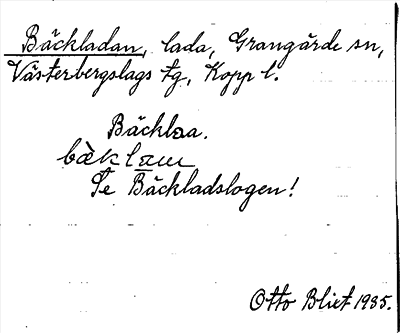 Bäckladan, lada, Grangärde sn,
Västerbergslags tg, Kopp l.
Bäcklaa.
bὰklaɯ
Se Bäckladslogen!
Otto Blixt 1935.